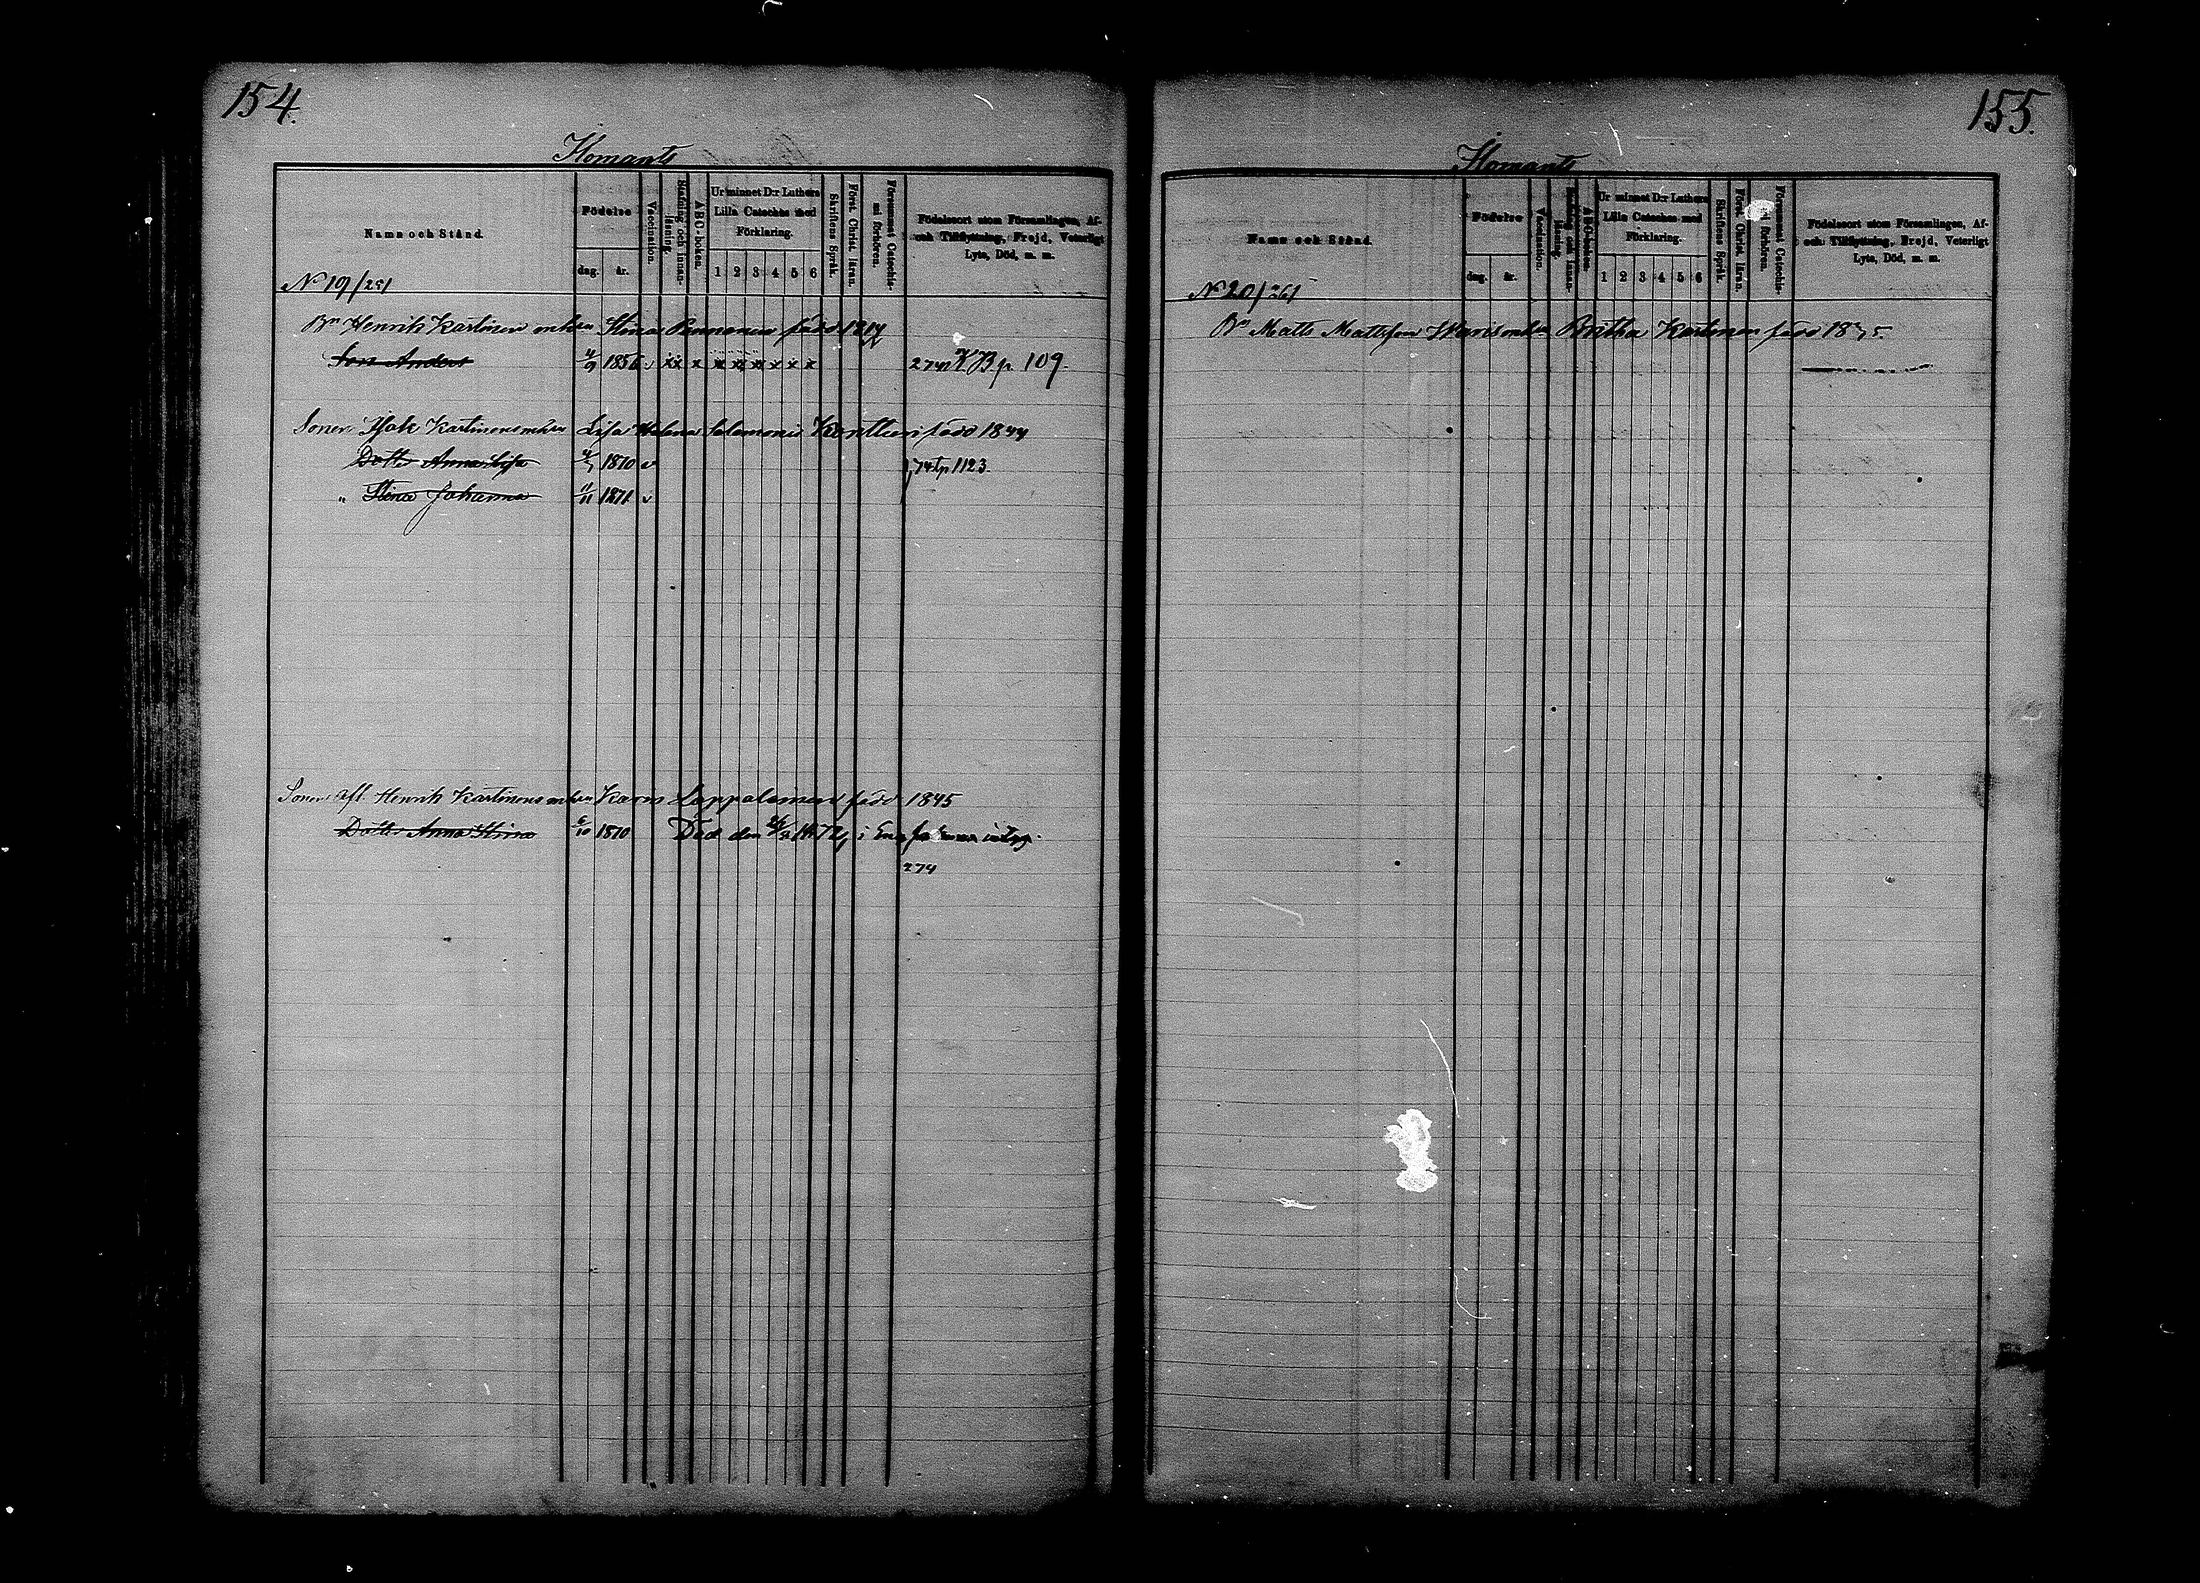 154.
Ilomants
Namn och Stånd.
Födelse
dag. år.
Vaccination.
Stafning och innanläsning.
ABC-boken.
Ur minnet D:r Luthers
Lilla Cateches med
Förklaring.
1 2 3 4 5 6
Skriftens Språk.
Först. Christ. läran.
Försummat Catechismi förhören.
Födelseort utom Församlingen, Af-
och Tillflyttning, Frejd, Veterligt
Lyte, Död, m. m.
N 19/251
Bn Henrik Kärtinen enkes Stina Pennanen född 1817
Son Anders 4/9 1856 v xx x x x x x x x 274 KB p. 109.
Sonen Isak Kärtinens Lisa Helena Salomonsd Kontturi född 1844
Dottr Anna Lisa 1870 v p 1123.
" Stina Johanna 11/11 1871 v
Sonen afl. Henrik Kärtinens enkes Karin Lappalainen född 1845
Dottr Anna Stina 6/10 1870 Död den 1872, i
274
155.
Ilomants
Namn och Stånd.
Födelse
dag. år.
Vaccination.
Stafning och innanläsning.
ABC-boken.
Ur minnet D:r Luthers
Lilla Cateches med
Förklaring.
1 2 3 4 5 6
Skriftens Språk.
Först. Christ. läran.
Försummat Catechismi förhören.
Födelseort utom Församlingen, Af-
och Tillflyttning, Frejd, Veterligt
Lyte, Död, m. m.
N 20/261
Bn Matts Mattsson Britha Kärtinen född